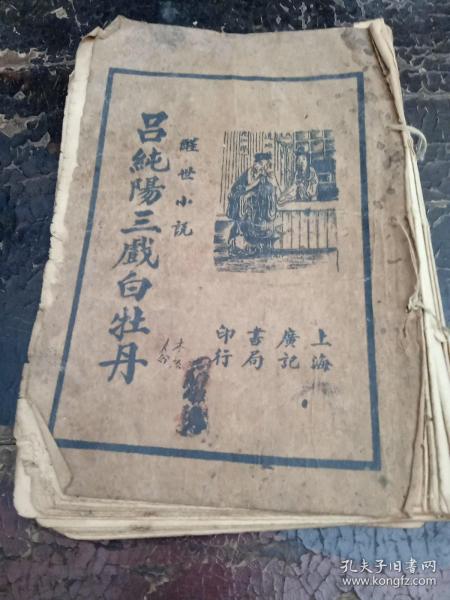 醒世小說
呂純陽三戲白牡丹
上海
廣記
書局
印行
孔夫子旧书网
www.kongfz.com